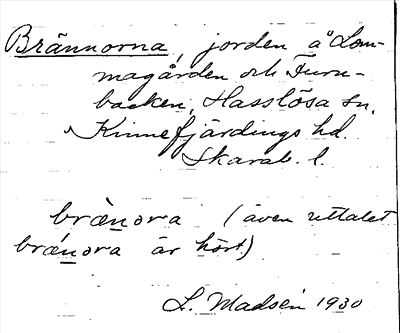 Brännorna, jorden å Lom-
magården och Furu-
backen, Hasslösa sn,
Kinnefjärdings hd.
Skarab. l.
bræ̀nora (även uttalet
brǽnora är hört)
L. Madsén 1930